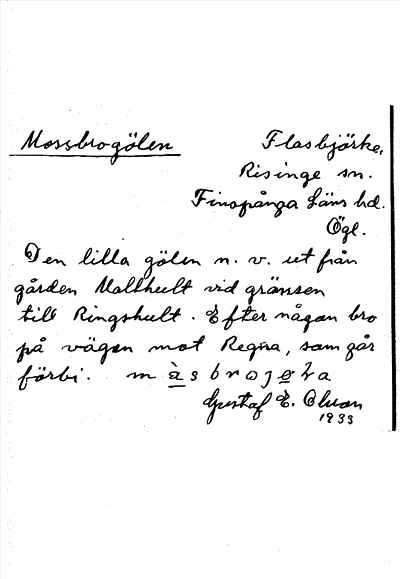 Mossbrogölen Flasbjörke,
Risinge sn.
Finspånga Läns hd.
Ögl.
Den lilla gölen n. v. ut från
gården Mallhult vid gränsen
till Ringshult. Efter någon bro
på vägen mot Regna, som går
förbi.
Gustaf E. Olsson
1933